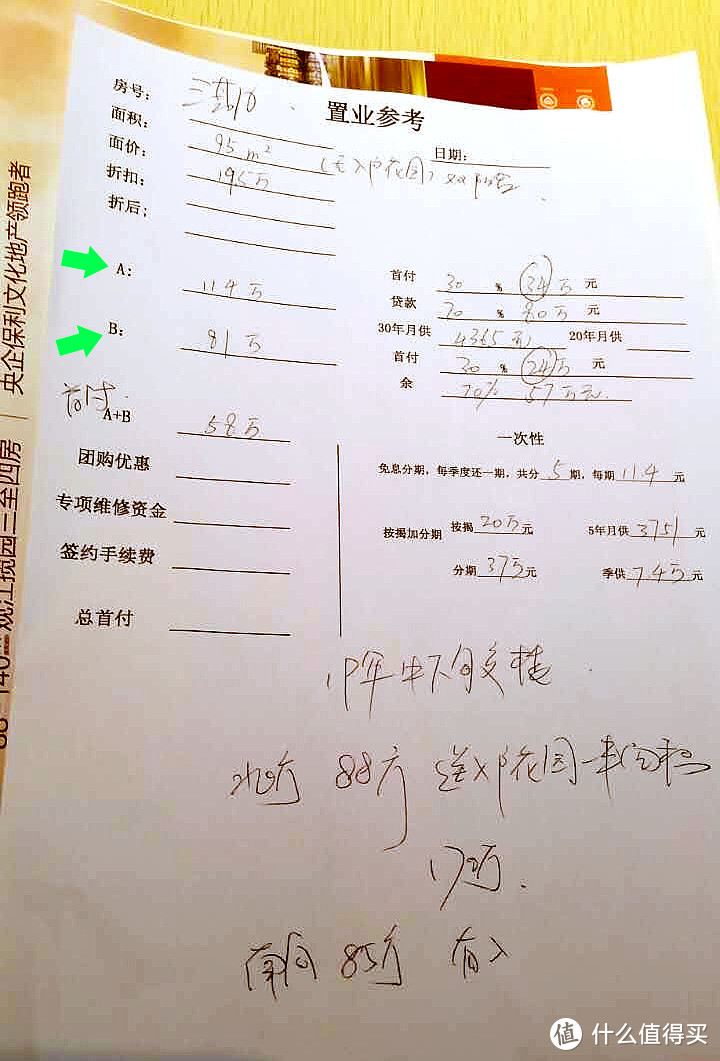 置业参考
房号：
面积：
日期：
面价： 95 m² （无入户花园）双阳台
折扣： 195万
折后；
A： 114万
首付 30 % 34万 元
贷款 70 % 80万 元
30年月供 4365元 20年月供
B： 81万
首付 30 % 24万 元
余 70% 57万元
首付
A+B 58万
团购优惠
专项维修资金
签约手续费
总首付
一次性
免息分期，每季度还一期，共分 5 期，每期 11.4 元
按揭加分期 按揭 20万 元 5年月供 3751 元
分期 37万 元 季供 7.4万 元
88方 送入户花园一半面积
17万.
南向 85方 有入
央企保利文化地产领跑者
值 什么值得买